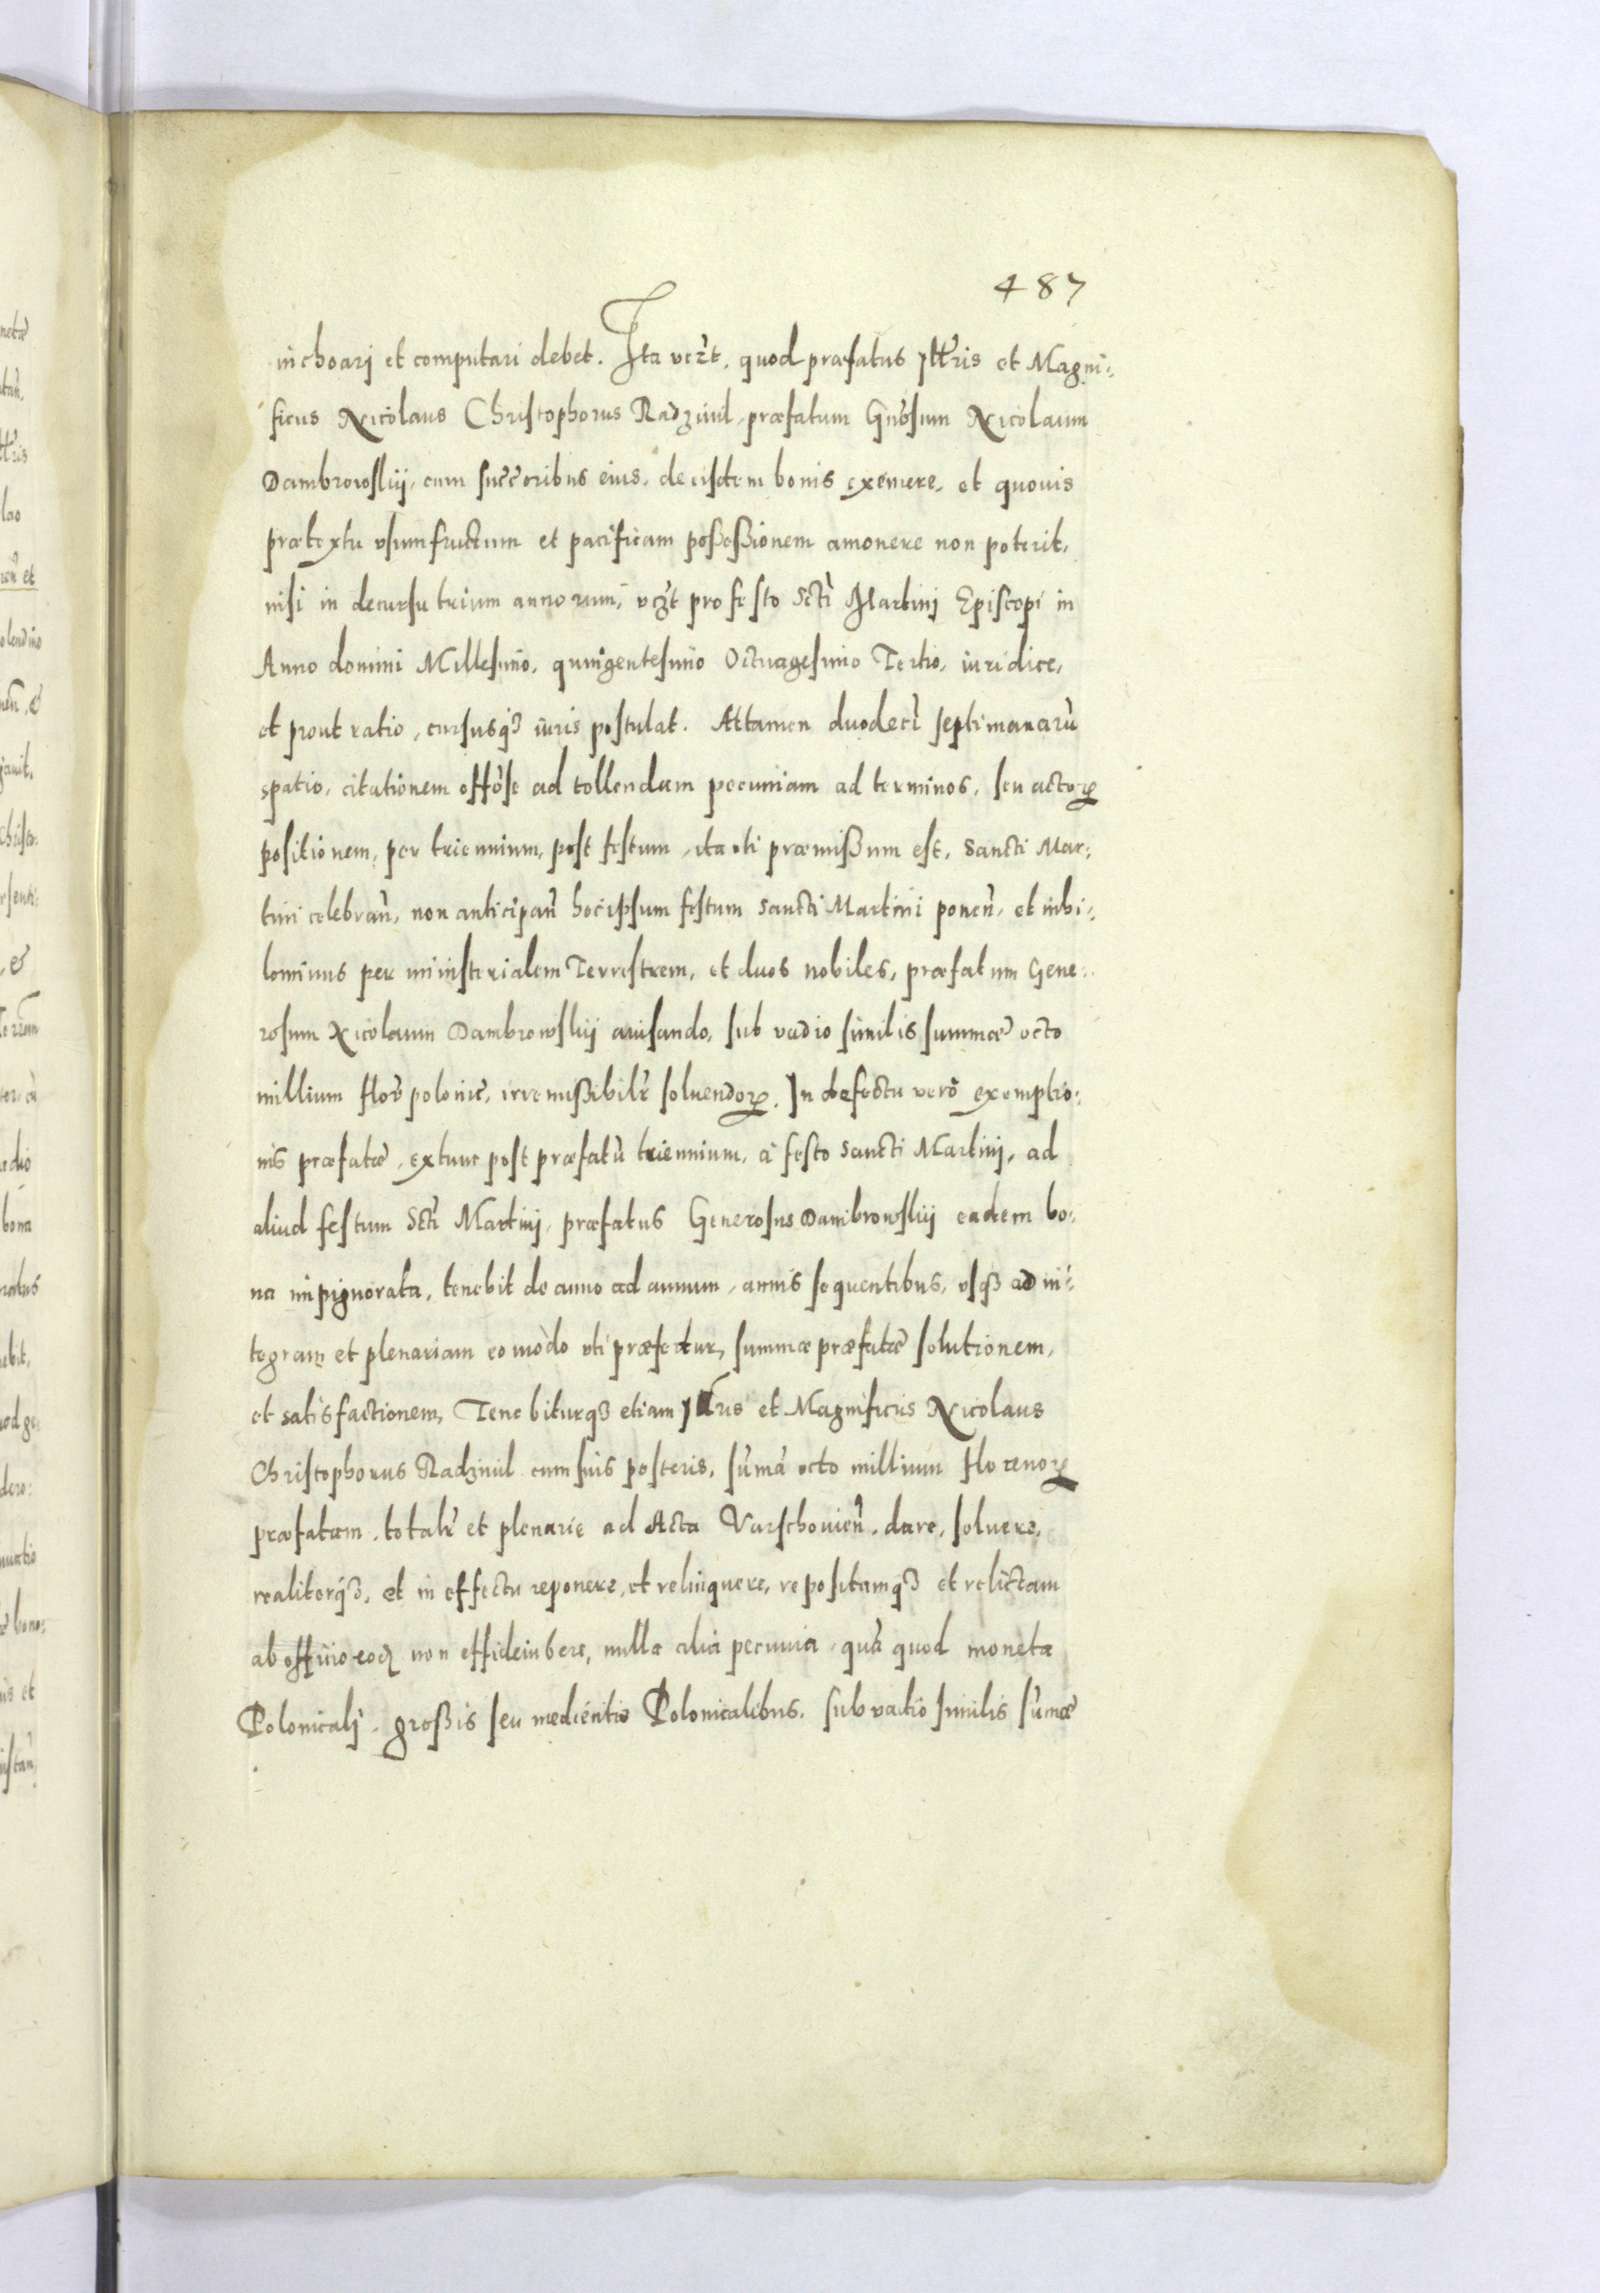 487
inchoarj et computari debet. Ita vezt, quod præfatus Jllris et Magni:
ficus Nicolaus Christophorus Radziuil, præfatum Gnosum Nicolaum
Dambrowskij, cum succoribus eius, de eisdem bonis eximere, et quouis
prætextu vsumfructum et pacificam possessionem amonere non poterit,
nisi in decursu trium annorum, vczt pro festo Scti Martinj Episcopi in
Anno domini Millesimo, quingentesimo Octuagesimo Tertio, iuridice,
et prout ratio, cursusq3 iuris postulat. Attamen duodeci septimanaru
spatio, citationem ad tollendam pecuniam ad terminos, seu actorꝝ
positionem, per triennium, post festum, ita vti præmissum est, Sancti Mar:
tini celebran, non anticipan hoc ipsum festum Sancti Martini ponen, et nihi:
lominus per ministerialem Terrestrem, et duos nobiles, præfatum Gene:
rosum Nicolaum Dambrowskij auisando, sub vadio similis summæ octo
millium flor polonic, irremissibilr soluendoꝝ. In defectu vero exemptio:
nis præfatæ, extunc post præfatu triennium, à festo Sancti Martinj, ad
aliud festum Scti Martinj, præfatus Generosus Dambrowskij eadem bo:
na impignorata, tenebit de anno ad annum, annis sequentibus, vsq3 ad in:
tegram et plenariam eo modo vti præfertur, summæ præfatæ solutionem,
et satisfactionem, Tenebiturq3 etiam Jllrus et Magnificus Nicolaus
Christophorus Radziuil cum suis posteris, suma octo millium florenoꝝ
præfatam, totalr et plenarie ad Acta Varschouien, dare, soluere,
realiterq3, et in effectu reponere, et relinquere, repositamq3 et relictam
ab officio eod non effideiubere, nulla alia pecunia, qua quod moneta
Polonicalj, grossis seu medientis Polonicalibus, sub vadio similis sumæ